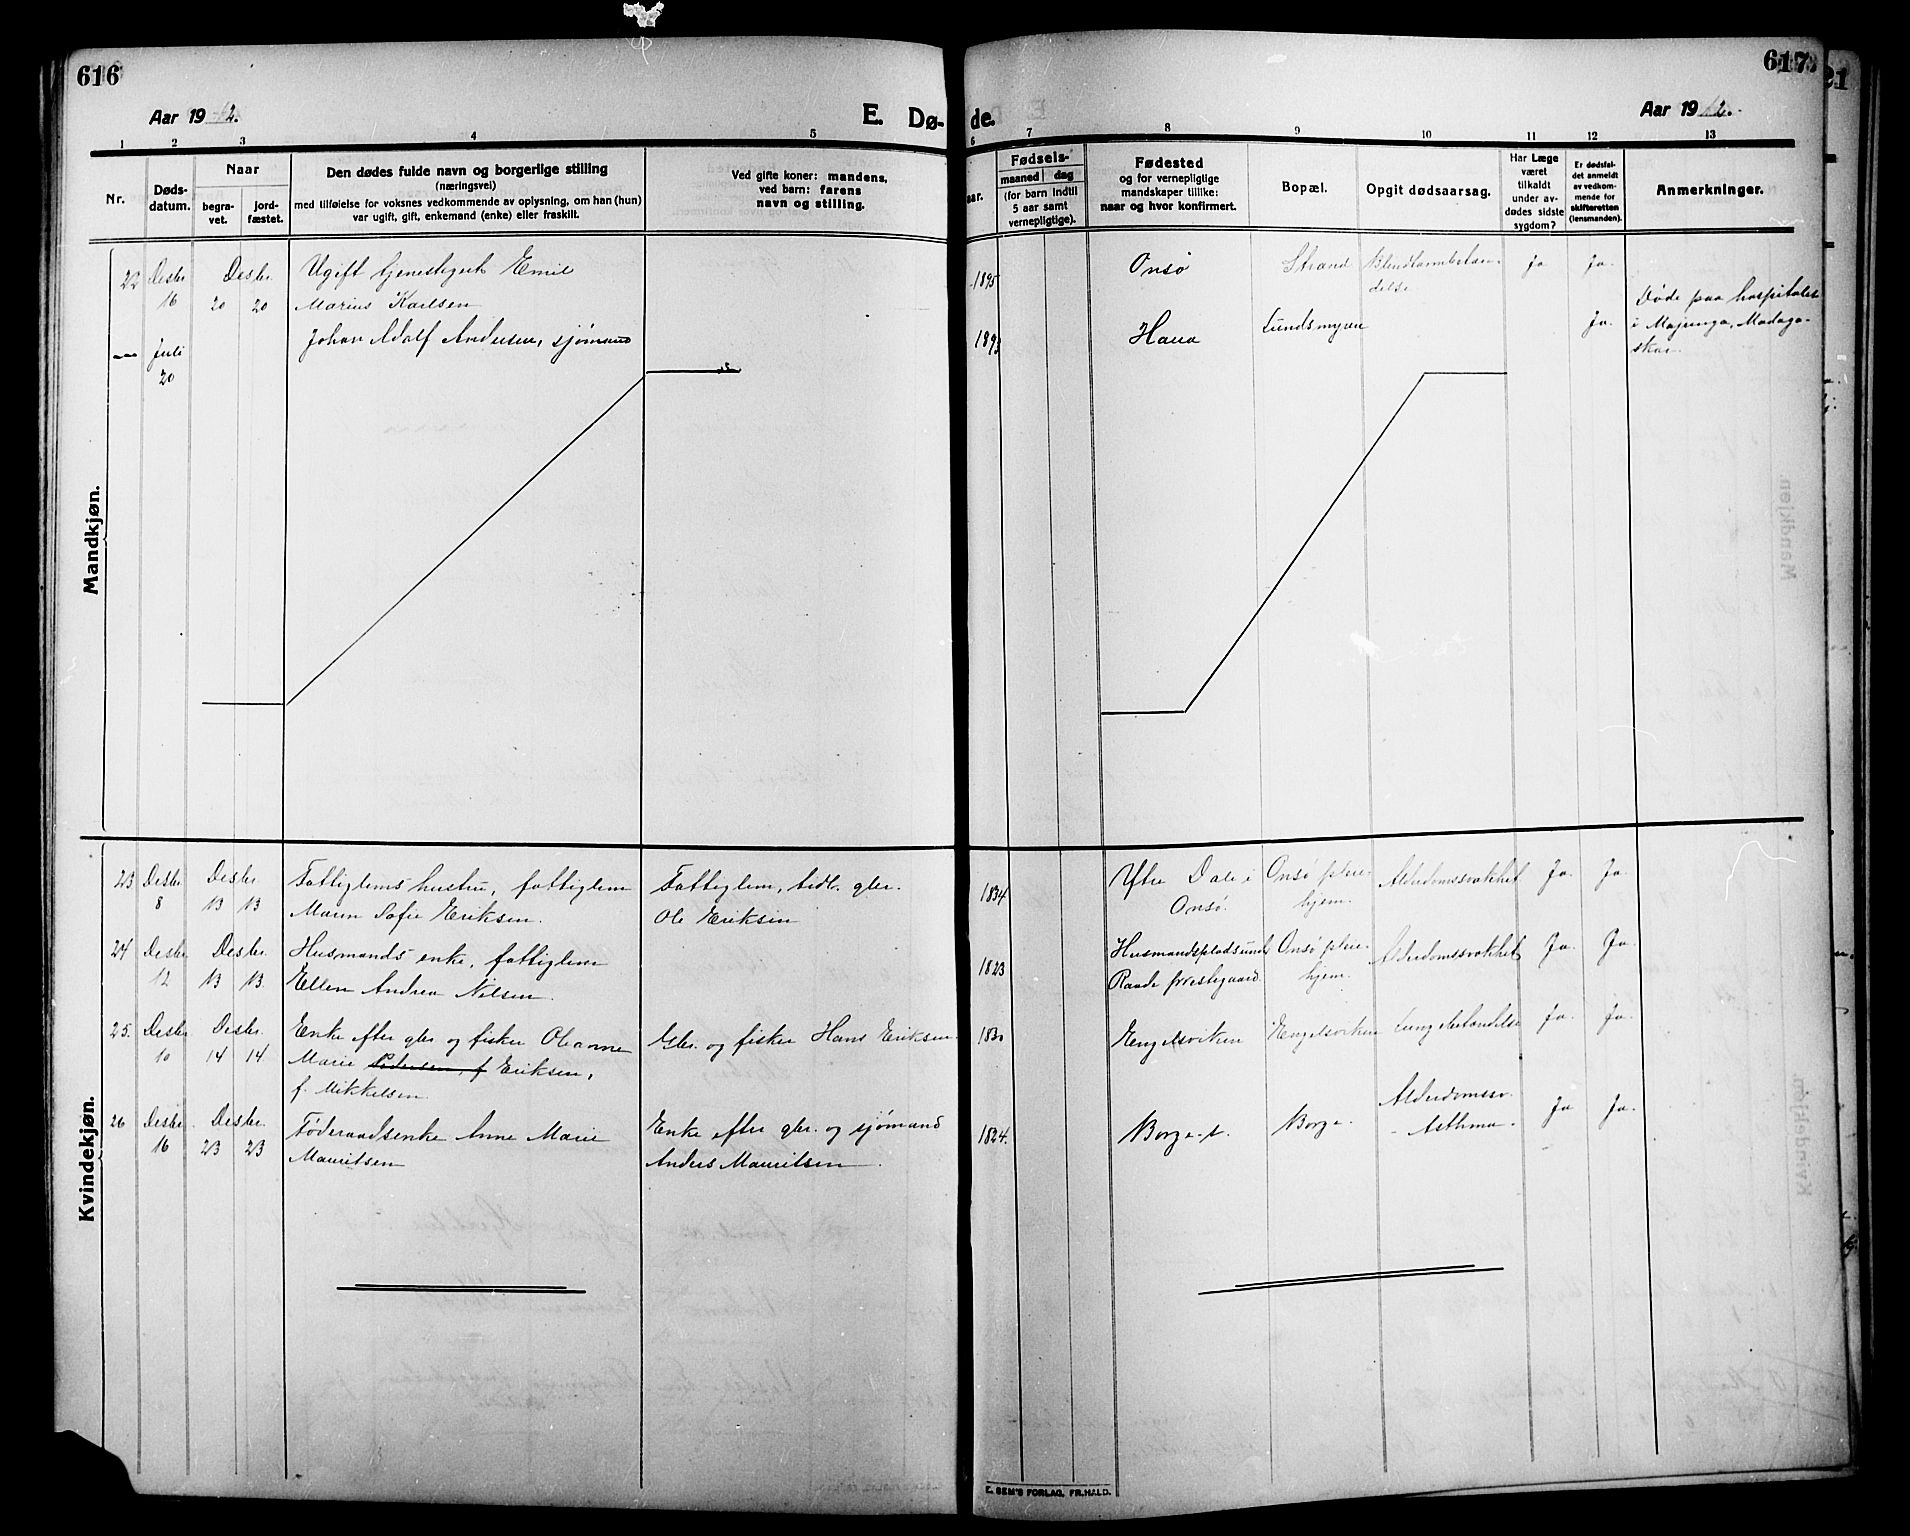 616
617
21
Aar 19 12.
E. Dø-
de.
Aar 19 12.
1 2 3 4 5 6 7 8 9 10 11 12 13
Nr.
Døds-
datum.
Naar
begra-
vet.
jord-
fæstet.
Den dødes fulde navn og borgerlige stilling
(næringsvei)
med tilføielse for voksnes vedkommende av oplysning, om han (hun)
var ugift, gift, enkemand (enke) eller fraskilt.
Ved gifte koner: mandens,
ved barn: farens
navn og stilling.
aar.
Fødsels-
maaned dag
(for barn indtil
5 aar samt
vernepligtige).
Fødested
og for vernepligtige
mandskaper tillike:
naar og hvor konfirmert.
Bopæl.
Opgit dødsaarsag.
Har Læge
været
tilkaldt
under av-
dødes sidste
sygdom?
Er dødsfal-
det anmeldt
av vedkom-
mende for
skifteretten
(lensmanden).
Anmerkninger.
Mandkjøn.
22 Desbr. Desbr. Ugift tjenestegut Emil 1895 Onsø Strand Blindtarmbetæn- Ja Ja.
16 20 20 Marius Karlsen delse
— Juli Johan Adolf Andersen, sjømand 1893 Haua Lundsmyren Ja. Døde paa hospitalet
20 i Majunga, Madaga-
skar.
Kvindekjøn.
23 Desbr. Desbr. Fattiglems hustru, fattiglem Fattiglem, tidl. gbr. 1834 Ytre Dale i Onsø pleie- Alderdomssvakhet Ja. Ja.
8 13 13 Maren Sofie Eriksen. Ole Eriksen Onsø. hjem.
24 Desbr. Desbr. Husmands enke, fattiglem 1823 Husmandsplads und. Onsø pleie- Alderdomssvakhet Ja. Ja.
12 13 13. Ellen Andrea Nilsen. Raade prestegaard. hjem.
25. Desbr. Desbr. Enke efter gbr. og fisker Oleanne Gbr. og fisker Hans Eriksen. 1830 Engelsviken Engelsviken Lungebetændelse Ja. Ja.
10 14 14 Marie Pedersen, f Eriksen,
f. Mikkelsen.
26 Desbr. Desbr. Føderaadsenke Anne Marie Enke efter gbr. og sjømand 1824. Borge Borge. Alderdomssv. Ja Ja.
16 23 23 Mauritsen Anders Mauritsen. - Asthma.
E. SEM'S FORLAG, FR.HALD.